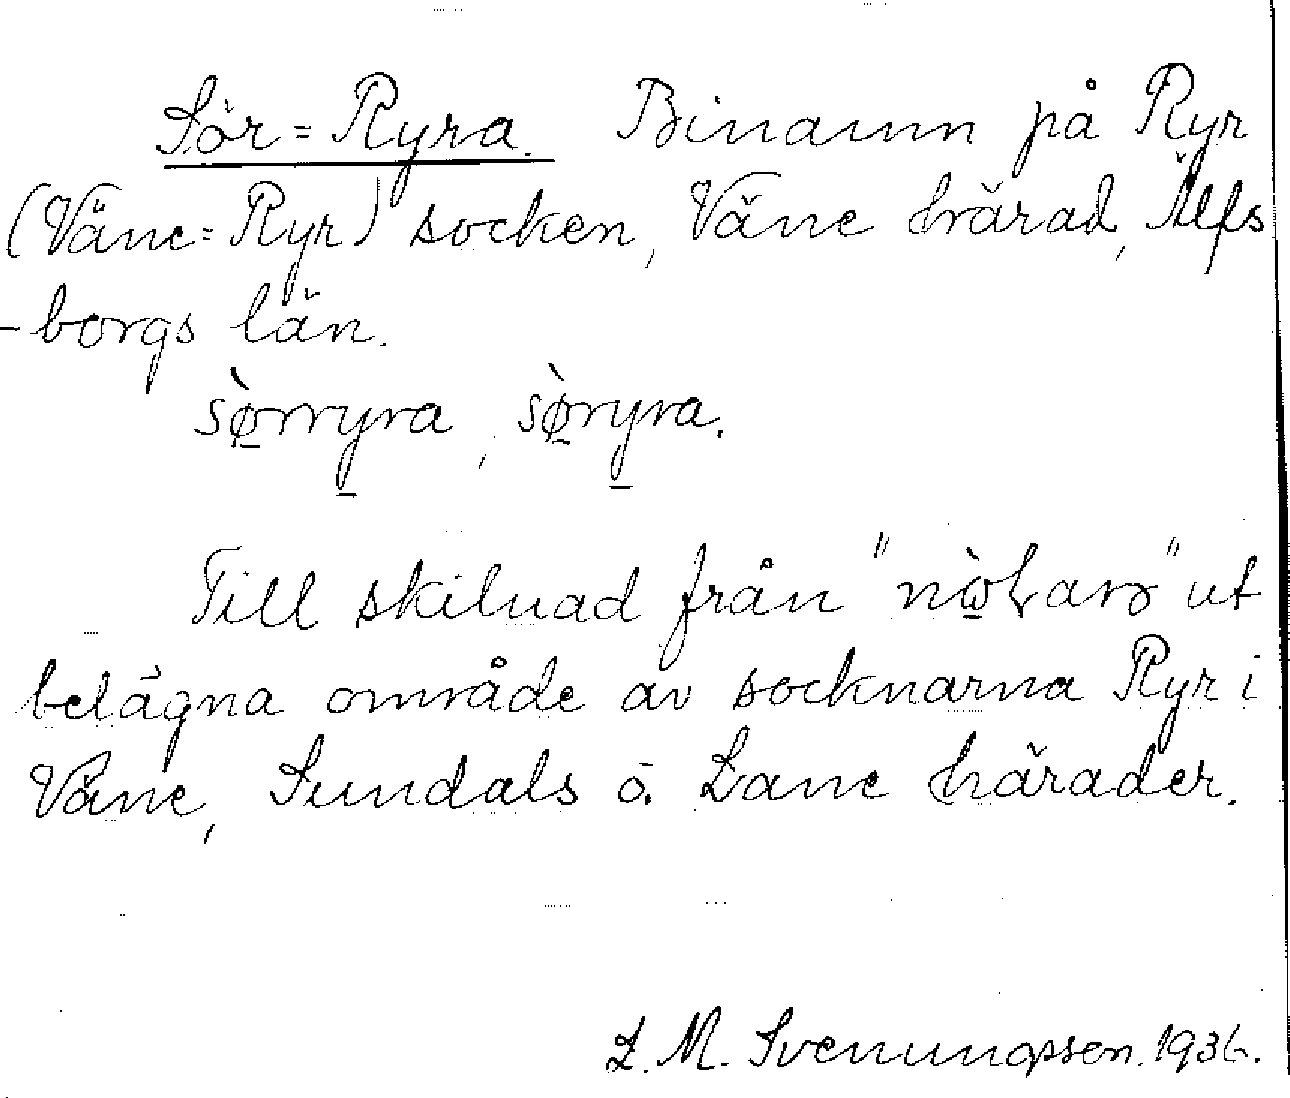 Sör=Ryra. Binamn på Ryr
(Väne=Ryr) socken, Väne härad, Älfs
-borgs län.
sø̀rryra, sø̀ryra.
Till skilnad från " " ut
belägna område av socknarna Ryr i
Väne, Sundals o. Lane härader.
L. M. Svenungsson. 1936.